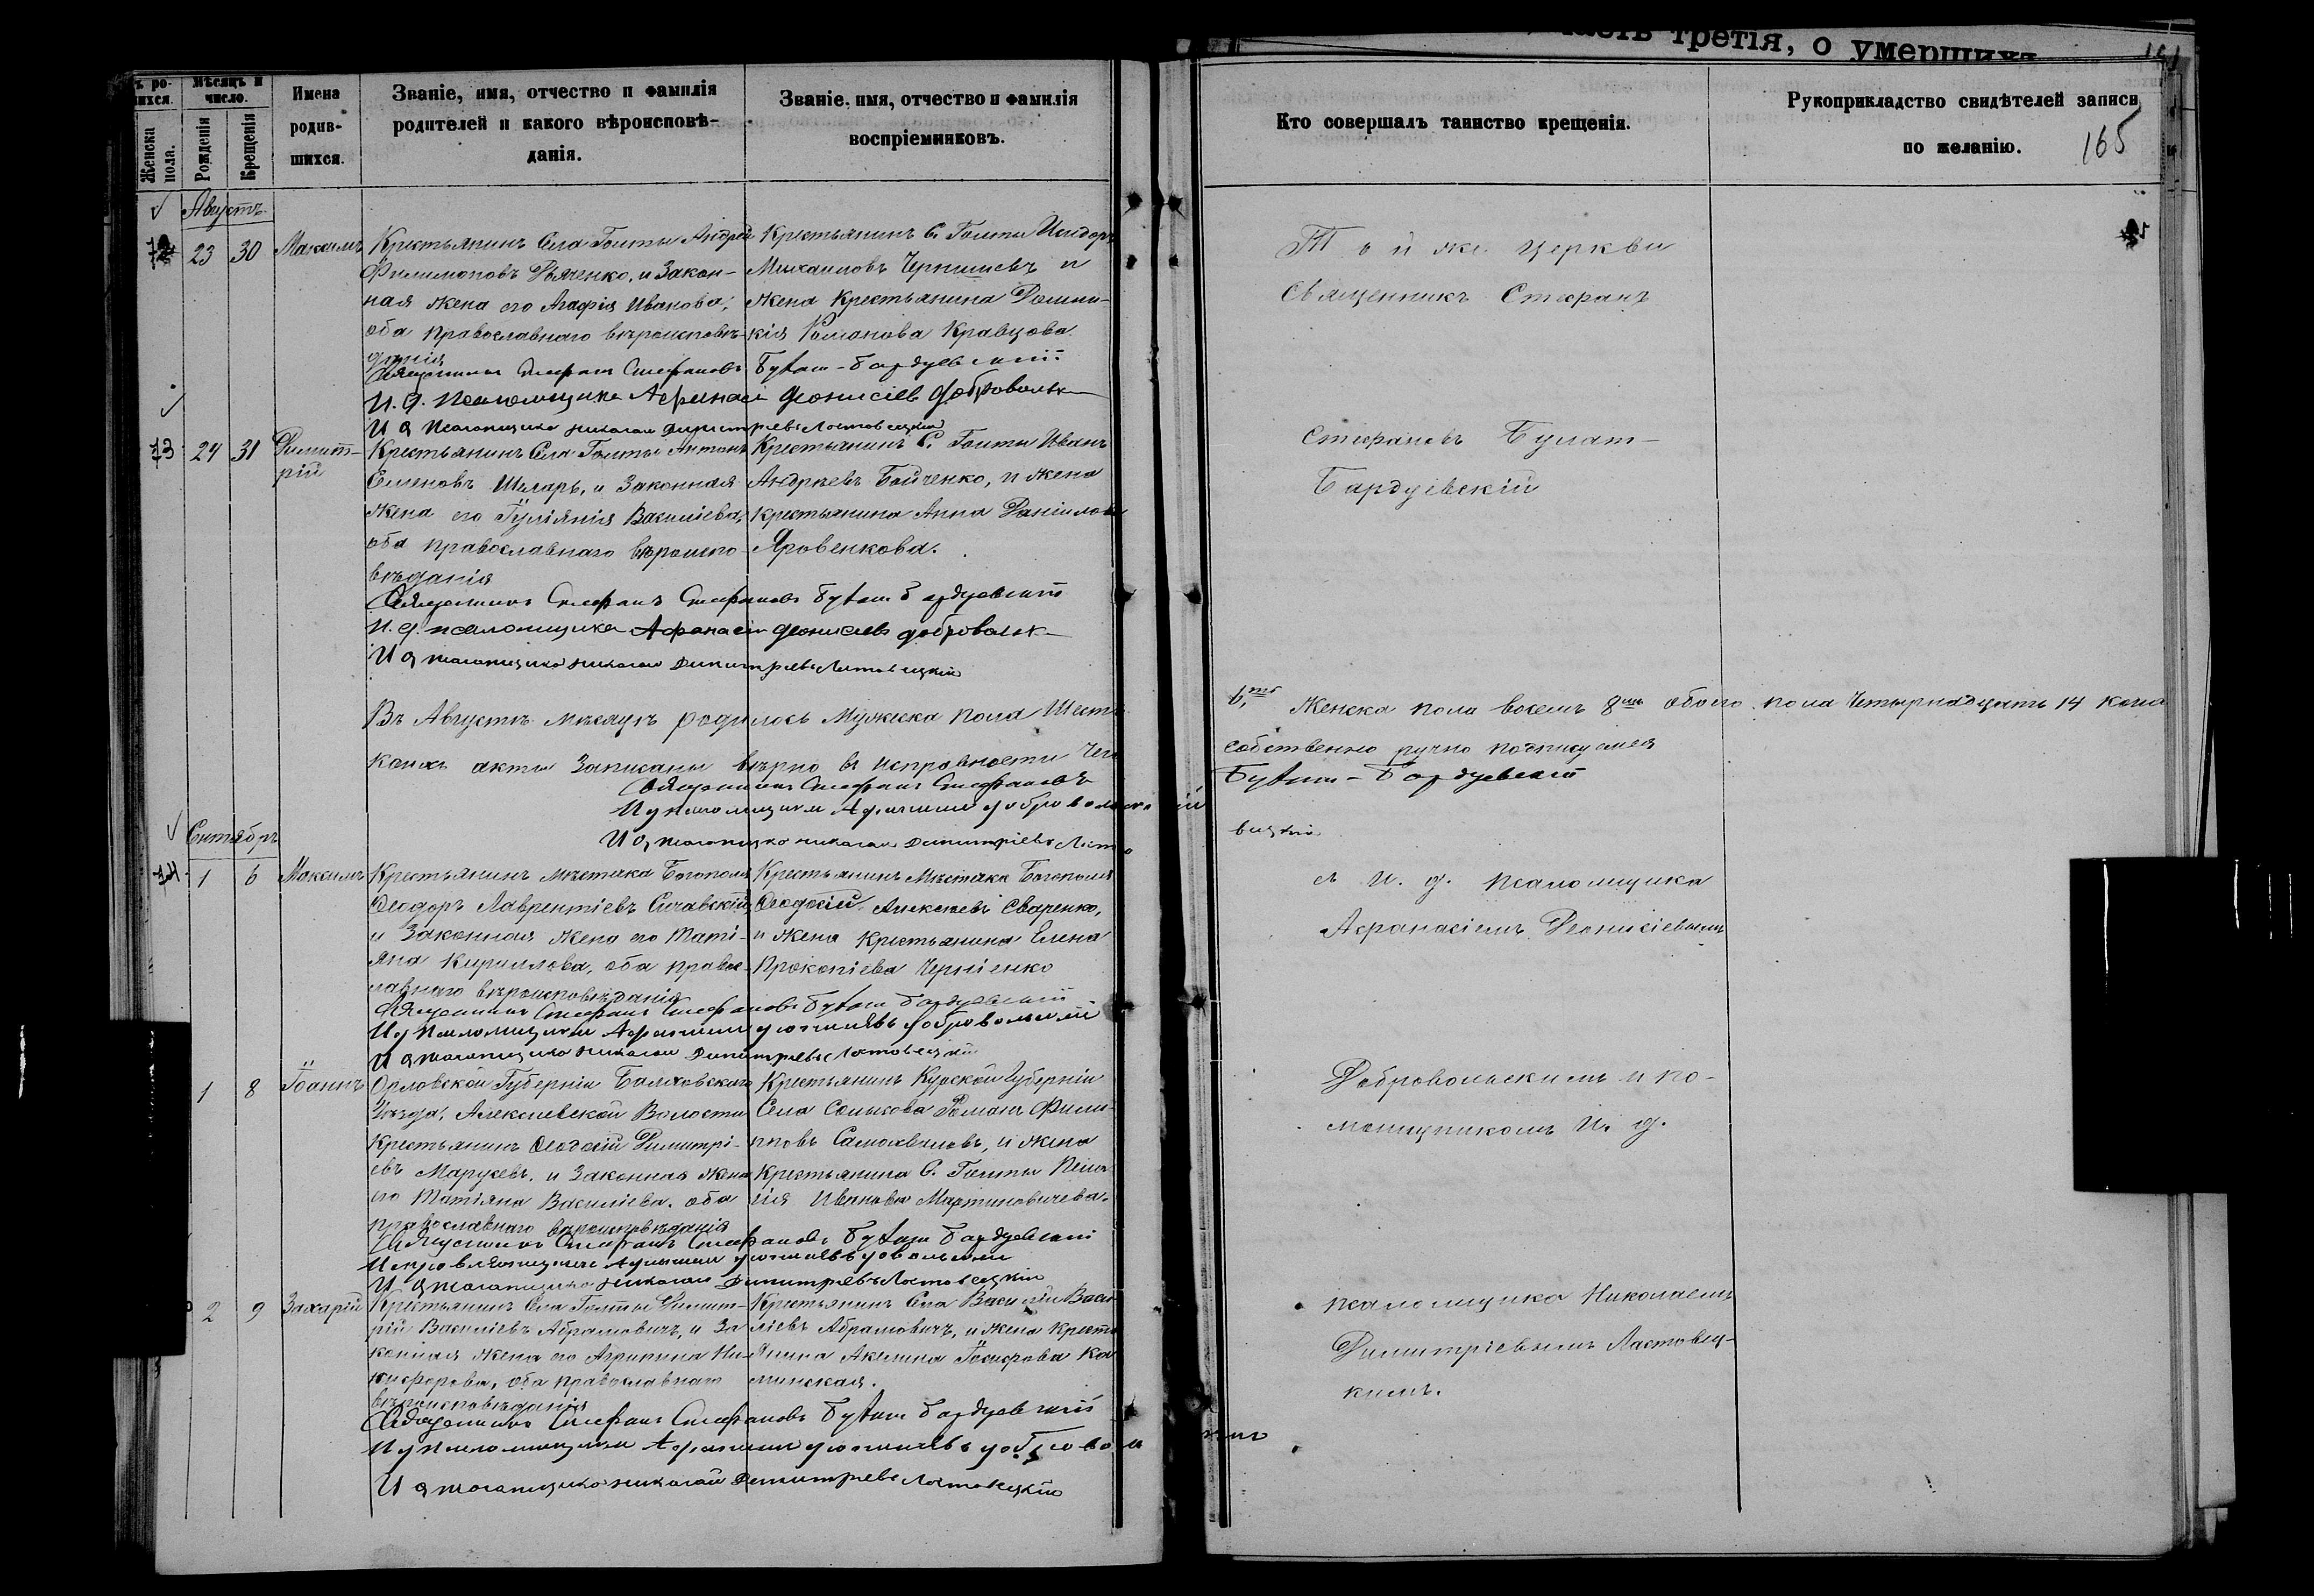 Часть третія, о умершихъ
Мѣсяцъ и число.
Женска пола.
Рожденія
Крещенія
Имена родив-
шихся.
Званіе, имя, отчество и фамилія
родителей и какого вѣроисповѣ-
данія.
Званіе, имя, отчество и фамилія
воспріемниковъ.
Кто совершалъ таинство крещенія.
Рукоприкладство свидѣтелей записи
по желанію.
165
Августъ
23 30 Максимъ
Крестьянинъ Села Голты Андрей
Филимоновъ Дьяченко, и Закон-
ная жена его Агафія Иванова,
оба православнаго вѣроисповѣ-
данія
Крестьянинъ С. Голты Исидоръ
Михаиловъ Чернышевъ и
жена Крестьянина Домни-
кія Романова Кравцова.
Священникъ Стефанъ Стефановъ Булат-Бардуевскій
И. д. Псаломщика Афанасій Деонисіев Добровольск
И д Псаломщика Николай Димитріевъ Ластовецкій
13 24 31 Димит-
рій
Крестьянинъ Села Голты Антонъ
Семеновъ Шларь, и Законная
жена его Іуліянія Василіева,
оба православнаго вѣроиспо-
вѣданія
Крестьянинъ С. Голты Иванъ
Андреевъ Бойченко, и жена
крестьянина Анна Даніилова
Яровенкова.
Священникъ Стефанъ Стефановъ Булат Бардуевскій
И. д. псаломщика Афанасій Деонисіевъ Добровольск
И д псаломщика Николай Димитріевъ Ластовецкій
Въ Августѣ мѣсяцѣ родилось Мужеска пола Шесть
6, Женска пола восемь 8мь обоего пола Четырнадцать 14 коихъ
коихъ акты Записаны вѣрно в исправности Чего
собственно ручно подписуемся
Священникъ Стефанъ Стефановъ
Булат-Бардуевскій
И д псаломщика Афанасій Добровольскій
И д псаломщика Николай Димитріевъ Ласто
вецкій
Сентябрь
14 1 6 Максимъ
Крестьянинъ мѣстечка Богополя
Ѳеодоръ Лаврентіевъ Сичавскій,
и Законная жена его Таті-
яна Кириллова, оба правос-
лавнаго вѣроисповѣданія
Крестьянинъ Мѣстечка Богополя
Ѳеодосій Алексѣевъ Сваренко,
и жена крестьянина Елена
Прокопіева Черніенко
Священникъ Стефанъ Стефановъ Булат Бардуевскій
И д Псаломщика Афанасій Деонисіевъ Добровольскій
И д псаломщика Николай Димитріевъ Ластовецкій
1 8 Іоаннъ
Орловской Губерніи Болховскаго
Уѣзда, Алексѣевской Волости
Крестьянинъ Ѳеодосій Димитрі-
евъ Марусевъ, и Законная жена
его Татіяна Василіева, оба
православнаго вѣроисповѣданія
Крестьянинъ Курской Губерніи
Села Сомыкова Романъ Фили-
пповъ Самохваловъ, и жена
Крестьянина С. Голты Пела-
гія Иванова Мартиновичева.
Священникъ Стефанъ Стефановъ Булат Бардуевскій
И д псаломщика Николай Димитріевъ Ластовецкій
2 9 Захарій
Крестьянинъ Села Голты Димит-
рій Василіевъ Абрамовичъ, и За-
конная жена его Агрипина Ни-
кифорова, оба православнаго
вѣроисповѣданія
Крестьянинъ Села Василій Васи-
ліевъ Абрамовичъ, и жена кресть-
янина Акелина Іосифова Ка-
минская.
Священникъ Стефанъ Стефановъ Булат Бардуевскій
И д Псаломщика Афанасій Деонисіевъ Добровольскій
И д псаломщика Николай Димитріевъ Ластовецкій
Той же церкви
Священникъ Стефанъ
Стефановъ Булат-
Бардуевскій
съ И. д. псаломщика
Афанасіемъ Деонисіевымъ
Добровольскимъ и по-
мощникомъ И. д.
псаломщика Николаемъ
Димитріевымъ Ластовец-
кимъ.